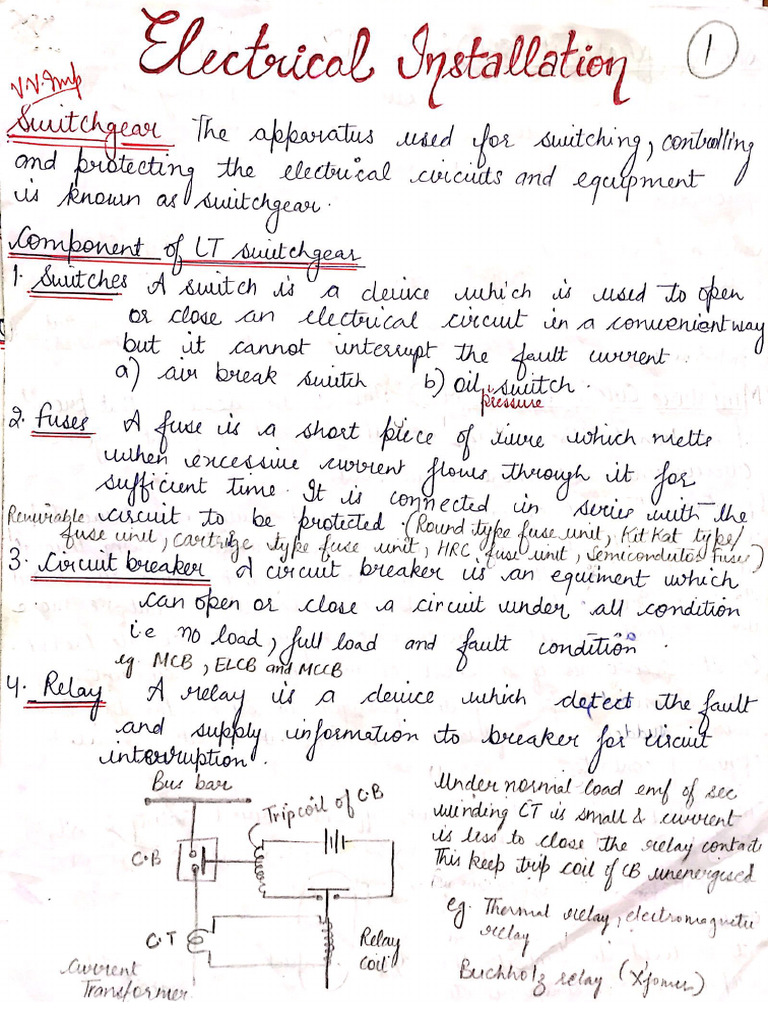 Electrical Installation
1
V.V.Imp
Switchgear The apparatus used for switching, controlling
and protecting the electrical circuits and equipment
is known as switchgear.
Component of LT switchgear
1. Switches A switch is a device which is used to open
or close an electrical circuit in a convenient way
but it cannot interrupt the fault current.
a) air break switch b) oil switch.
pressure
2. Fuses A fuse is a short piece of wire which melts
when excessive current flows through it for
sufficient time. It is connected in series with the
circuit to be protected. (Round type fuse unit, Kit Kat type/
Rewirable fuse unit, Cartridge type fuse unit, HRC fuse unit, Semicondutor fuse)
3. Circuit breaker A circuit breaker is an equiment which
can open or close a circuit under all condition
i.e no load, full load and fault condition.
eg. MCB, ELCB and MCCB
4. Relay A relay is a device which detect the fault
and supply information to breaker for circuit
interruption.
Bus bar
Trip coil of C.B
C.B
C.T
Current
Transformer
Relay
coil
Under normal load emf of sec
winding CT is small & current
is less to close the relay contact
This keep trip coil of CB unenergised
eg. Thermal relay, electromagnetic
relay
Buchholz relay (Xfomer)